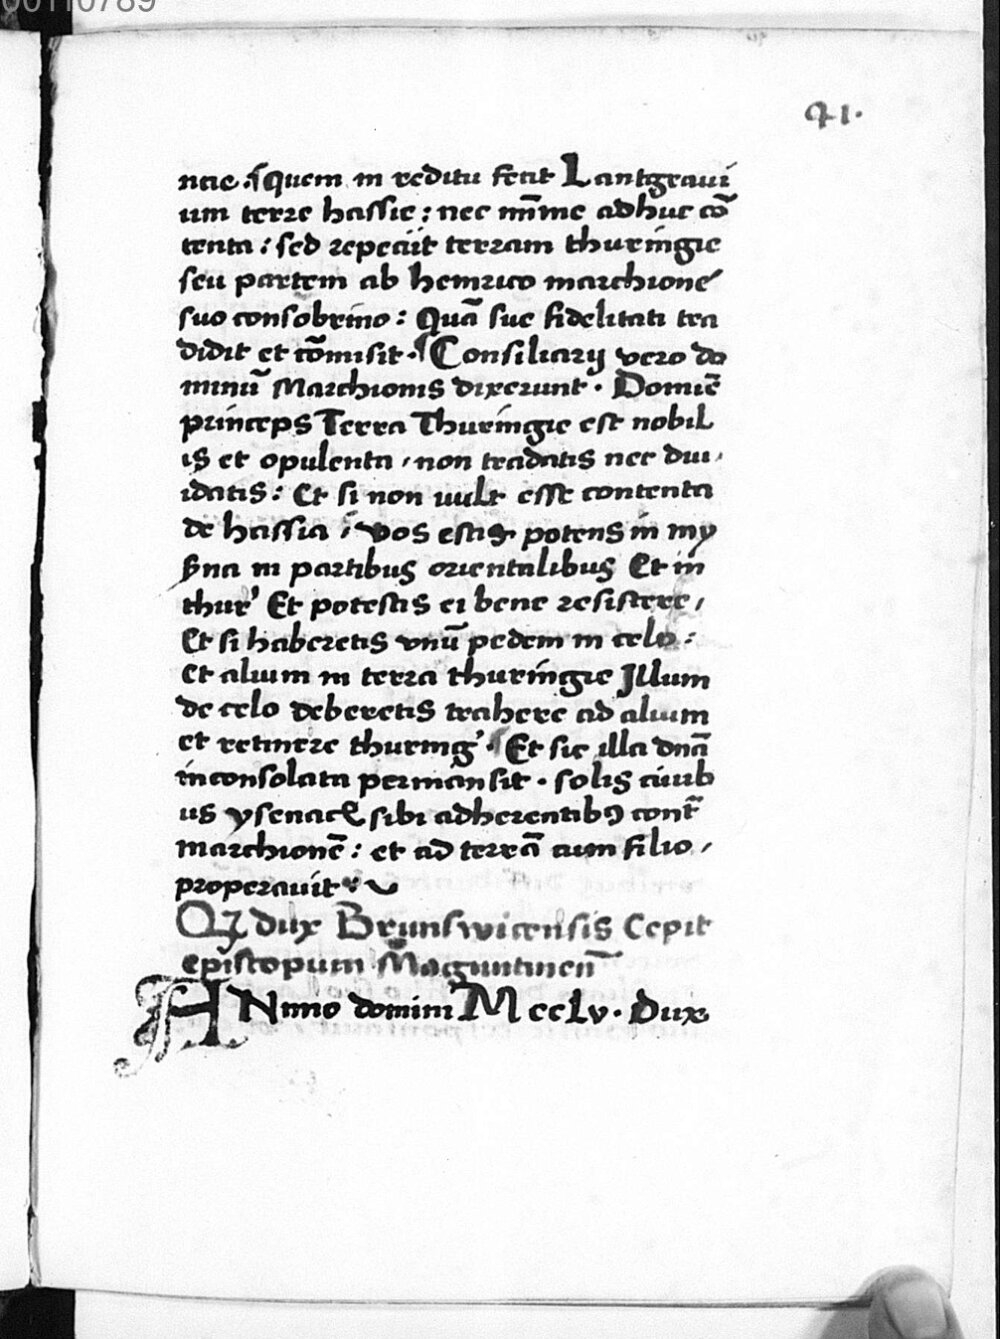 00110789
41.
nae. quem in reditu fecit Lantgraui
um terre hassie: nec mīme adhuc cō
tenta: sed repeciit terram thuringie
seu partem ab henrico marchione
suo consobrino: Quā sue fidelitati tra
didit et cōmisit. Consiliarij vero do
minū Marchionis dixerunt. Domiē
princeps Terra Thuringie est nobil
is et opulenta, non tradatis nec diui,
idatis: Et si non uult esse contenta
de hassia, vos estis potens in my
ßna in partibus orientalibus Et in
thur' Et potestis ei bene resistere,
Et si haberetis vnū pedem in celo:
et alium in terra thuringie Jllum
de celo deberetis trahere ad alium
et retinere thuring'. Et sic illa dnā
inconsolata permansit. solis ciuib
us ysenace sibi adherentibꝰ cont̄
marchionē: et ad terrā cum filio,
properauit
Qꝫ dux Brunswicensis Cepit
episcopum Maguntineñ
ANnno domini MccLv. Dux